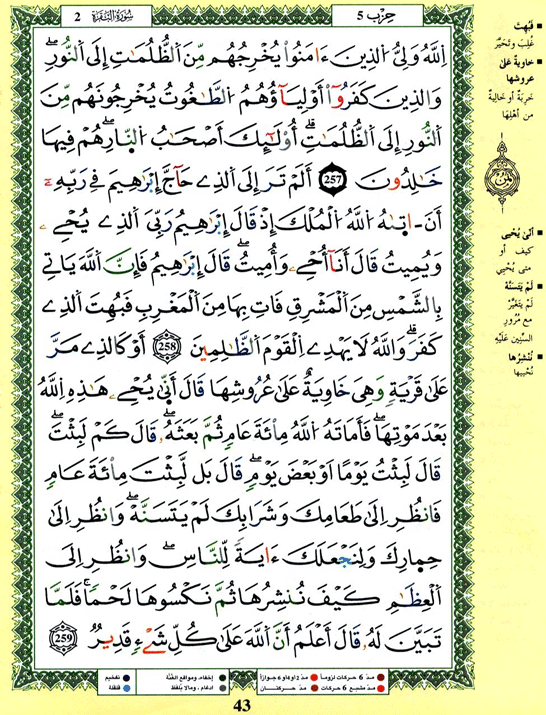 حِزْبُ 5
سُورَةُ الْبَقَرَةِ 2
اللَّهُ وَلِيُّ الَّذِينَ ءَامَنُواْ يُخْرِجُهُم مِّنَ الظُّلُمَٰتِ إِلَى النُّورِ
وَالَّذِينَ كَفَرُوٓاْ أَوْلِيَآؤُهُمُ الطَّٰغُوتُ يُخْرِجُونَهُم مِّنَ
النُّورِ إِلَى الظُّلُمَٰتِ أُوْلَٰٓئِكَ أَصْحَٰبُ النّ۪ارِ هُمْ فِيهَا
خَٰلِدُونَ 257 أَلَمْ تَرَ إِلَى الَّذِے حَآجَّ إِبْرَٰهِيمَ فِے رَبِّهِۦٓ
أَنَ اتٜىٰهُ اللَّهُ الْمُلْكَ إِذْ قَالَ إِبْرَٰهِيمُ رَبِّيَ الَّذِے يُحْىِۦ
وَيُمِيتُ قَالَ أَنَآ أُحْىِۦ وَأُمِيتُ قَالَ إِبْرَٰهِيمُ فَإِنَّ اللَّهَ يَاتِے
بِالشَّمْسِ مِنَ الْمَشْرِقِ فَاتِ بِهَا مِنَ الْمَغْرِبِ فَبُهِتَ الَّذِے
كَفَرَ وَاللَّهُ لَا يَهْدِے الْقَوْمَ الظَّٰلِمِينَ 258 أَوْ كَالَّذِے مَرَّ
عَلَىٰ قَرْيَةٍ وَهِيَ خَاوِيَةٌ عَلَىٰ عُرُوشِهَا قَالَ أَنّٜىٰ يُحْىِۦ هَٰذِهِ اللَّهُ
بَعْدَ مَوْتِهَا فَأَمَاتَهُ اللَّهُ مِاْئَةَ عَامٍ ثُمَّ بَعَثَهُۥ قَالَ كَمْ لَبِثْتَ
قَالَ لَبِثْتُ يَوْمًا اَوْ بَعْضَ يَوْمٍ قَالَ بَل لَّبِثْتَ مِاْئَةَ عَامٍ
فَانظُرِ إِلَىٰ طَعَامِكَ وَشَرَابِكَ لَمْ يَتَسَنَّهْ وَانظُرِ إِلَىٰ
حِم۪ارِكَ وَلِنَجْعَلَكَ ءَايَةً لِّلنَّاسِ وَانظُرِ إِلَى
الْعِظَٰمِ كَيْفَ نُنشِرُهَا ثُمَّ نَكْسُوهَا لَحْمًا فَلَمَّا
تَبَيَّنَ لَهُۥ قَالَ أَعْلَمُ أَنَّ اللَّهَ عَلَىٰ كُلِّ شَےْءٍ قَدِيرٌ 259
■ فَبُهِتَ
غُلِبَ وتَحَيَّرَ
■ خاوِيةٌ عَلَىٰ
عروشها
خَرِبَةٌ أو خَالِيَةٌ
من أهْلِهَا
ثُمُن
■ أنّىٰ يُحْيِي
كيف أو
متى يُحْيِي
■ لَمْ يَتَسَنَّهْ
لَمْ يَتَغَيَّرْ
مع مُرُورِ
السِّنِين عَلَيْهِ
■ نُنْشِرُها
نُحْيِيها
مدّ 6 حركات لزوماً مدّ 2 أو 4 أو 6 جوازاً إخفاء، ومواقع الغُنَّة تفخيم
مدّ مشبع 6 حركات مدّ حركتان إدغام، وما لا يُلفَظ قلقلة
43